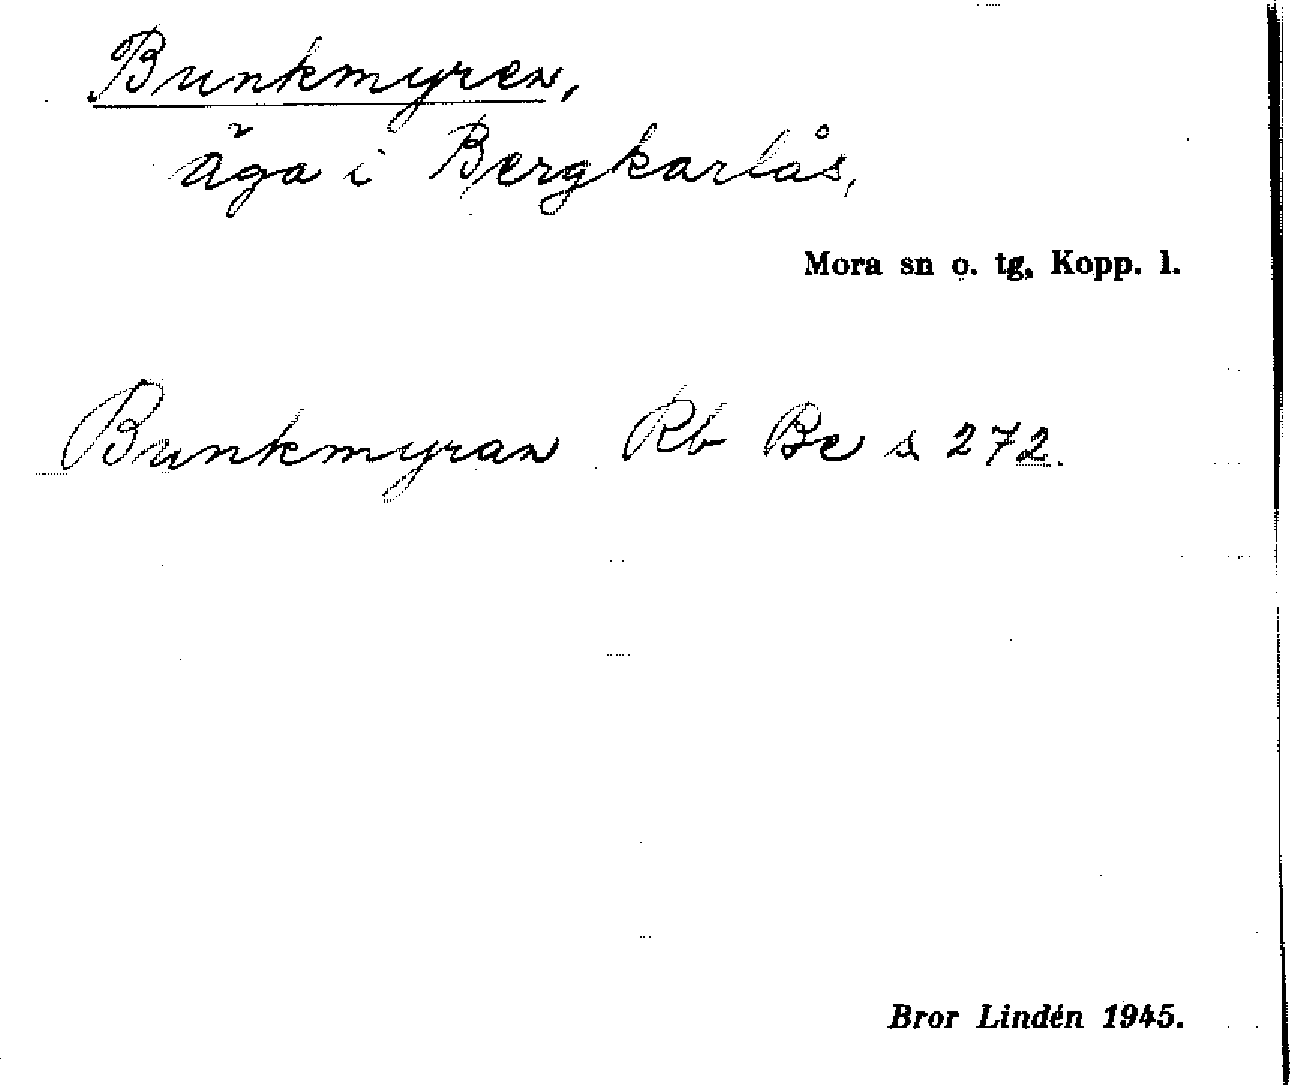 Bunkmyren,
äga i Bergkarlås,
Mora sn o. tg, Kopp. l.
Bunkmyran Rb Be s 272.
Bror Lindén 1945.